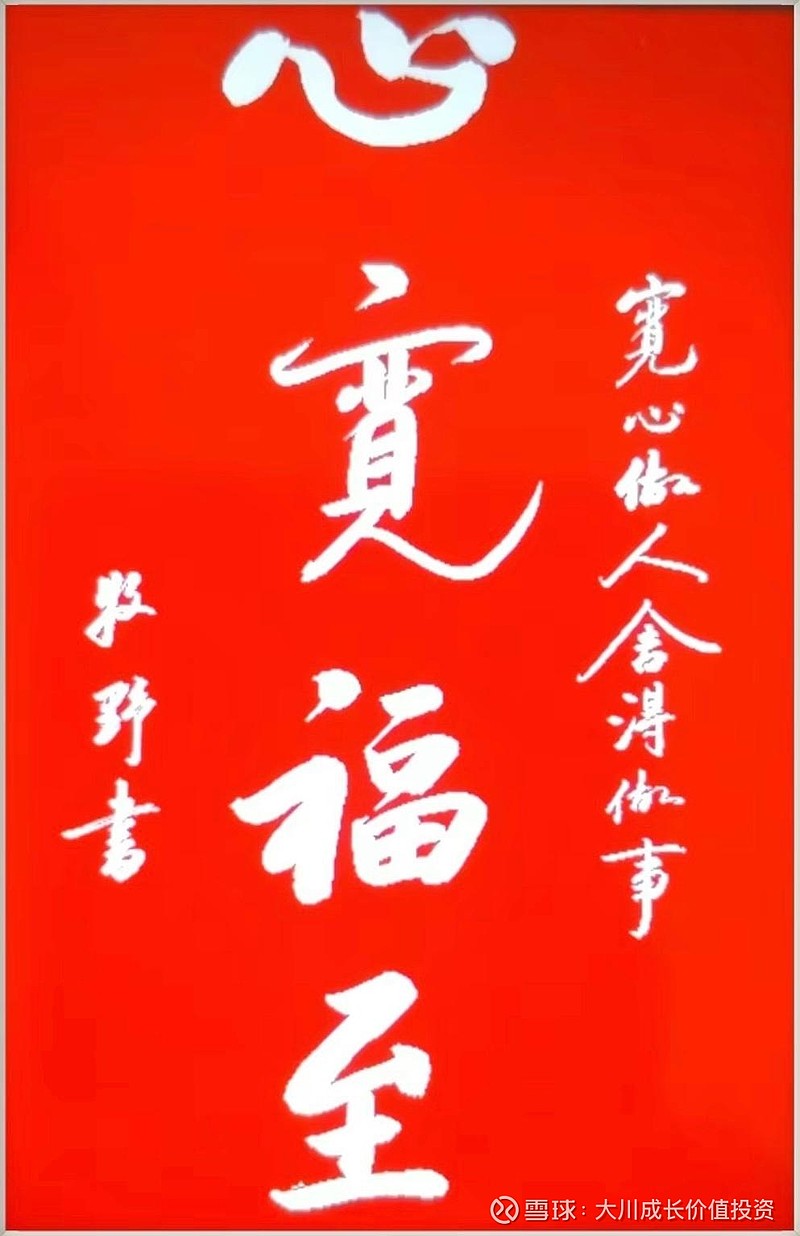 寬心做人舍得做事
心寬福至
牧野書
雪球：大川成长价值投资